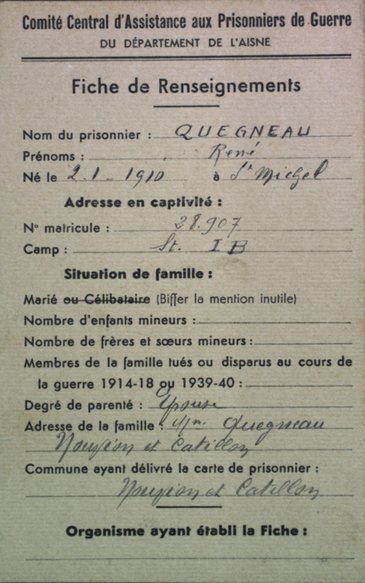 Comité Central d'Assistance aux Prisonniers de Guerre
DU DÉPARTEMENT DE L'AISNE
Fiche de Renseignements
Nom du prisonnier : QUEGNEAU
Prénoms : René
Né le 2.1.1910 à St Michel
Adresse en captivité :
N° matricule : 28.907
Camp : St. I B
Situation de famille :
Marié ou Célibataire (Biffer la mention inutile)
Nombre d'enfants mineurs :
Nombre de frères et sœurs mineurs :
Membres de la famille tués ou disparus au cours de
la guerre 1914-18 ou 1939-40 :
Degré de parenté : Epouse
Adresse de la famille : Mme Quegneau
Nouvion et Catillon
Commune ayant délivré la carte de prisonnier :
Nouvion et Catillon
Organisme ayant établi la Fiche :